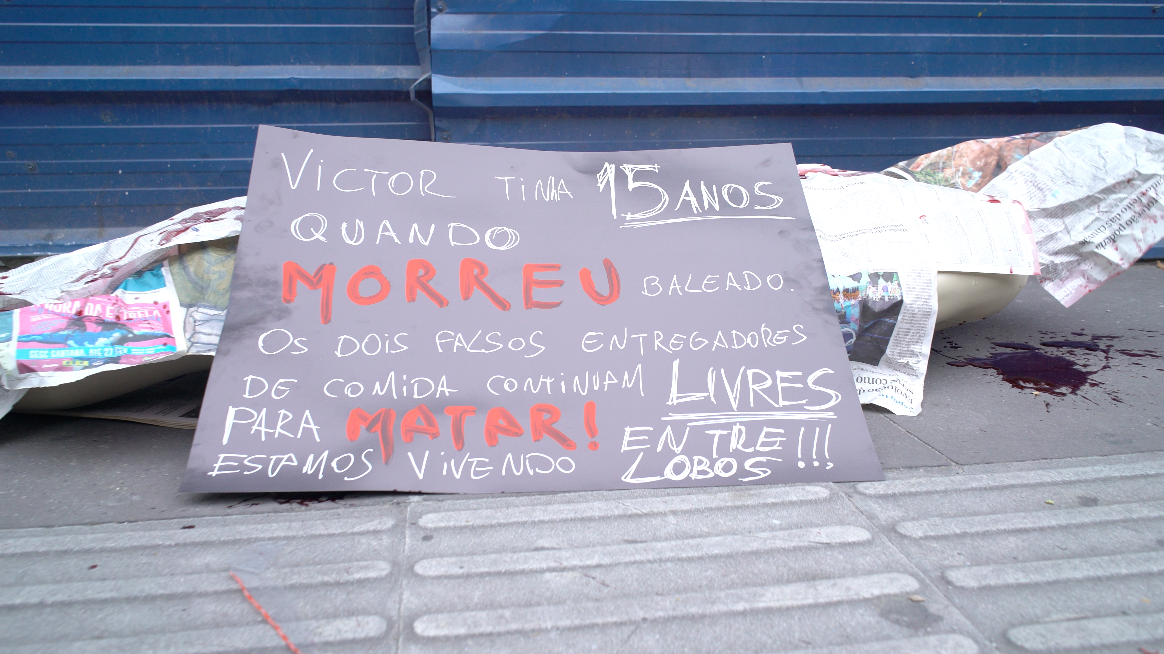 VICTOR TINHA 15 ANOS
QUANDO
MORREU BALEADO.
OS DOIS FALSOS ENTREGADORES
DE COMIDA CONTINUAM LIVRES
PARA MATAR!
ESTAMOS VIVENDO ENTRE LOBOS!!!